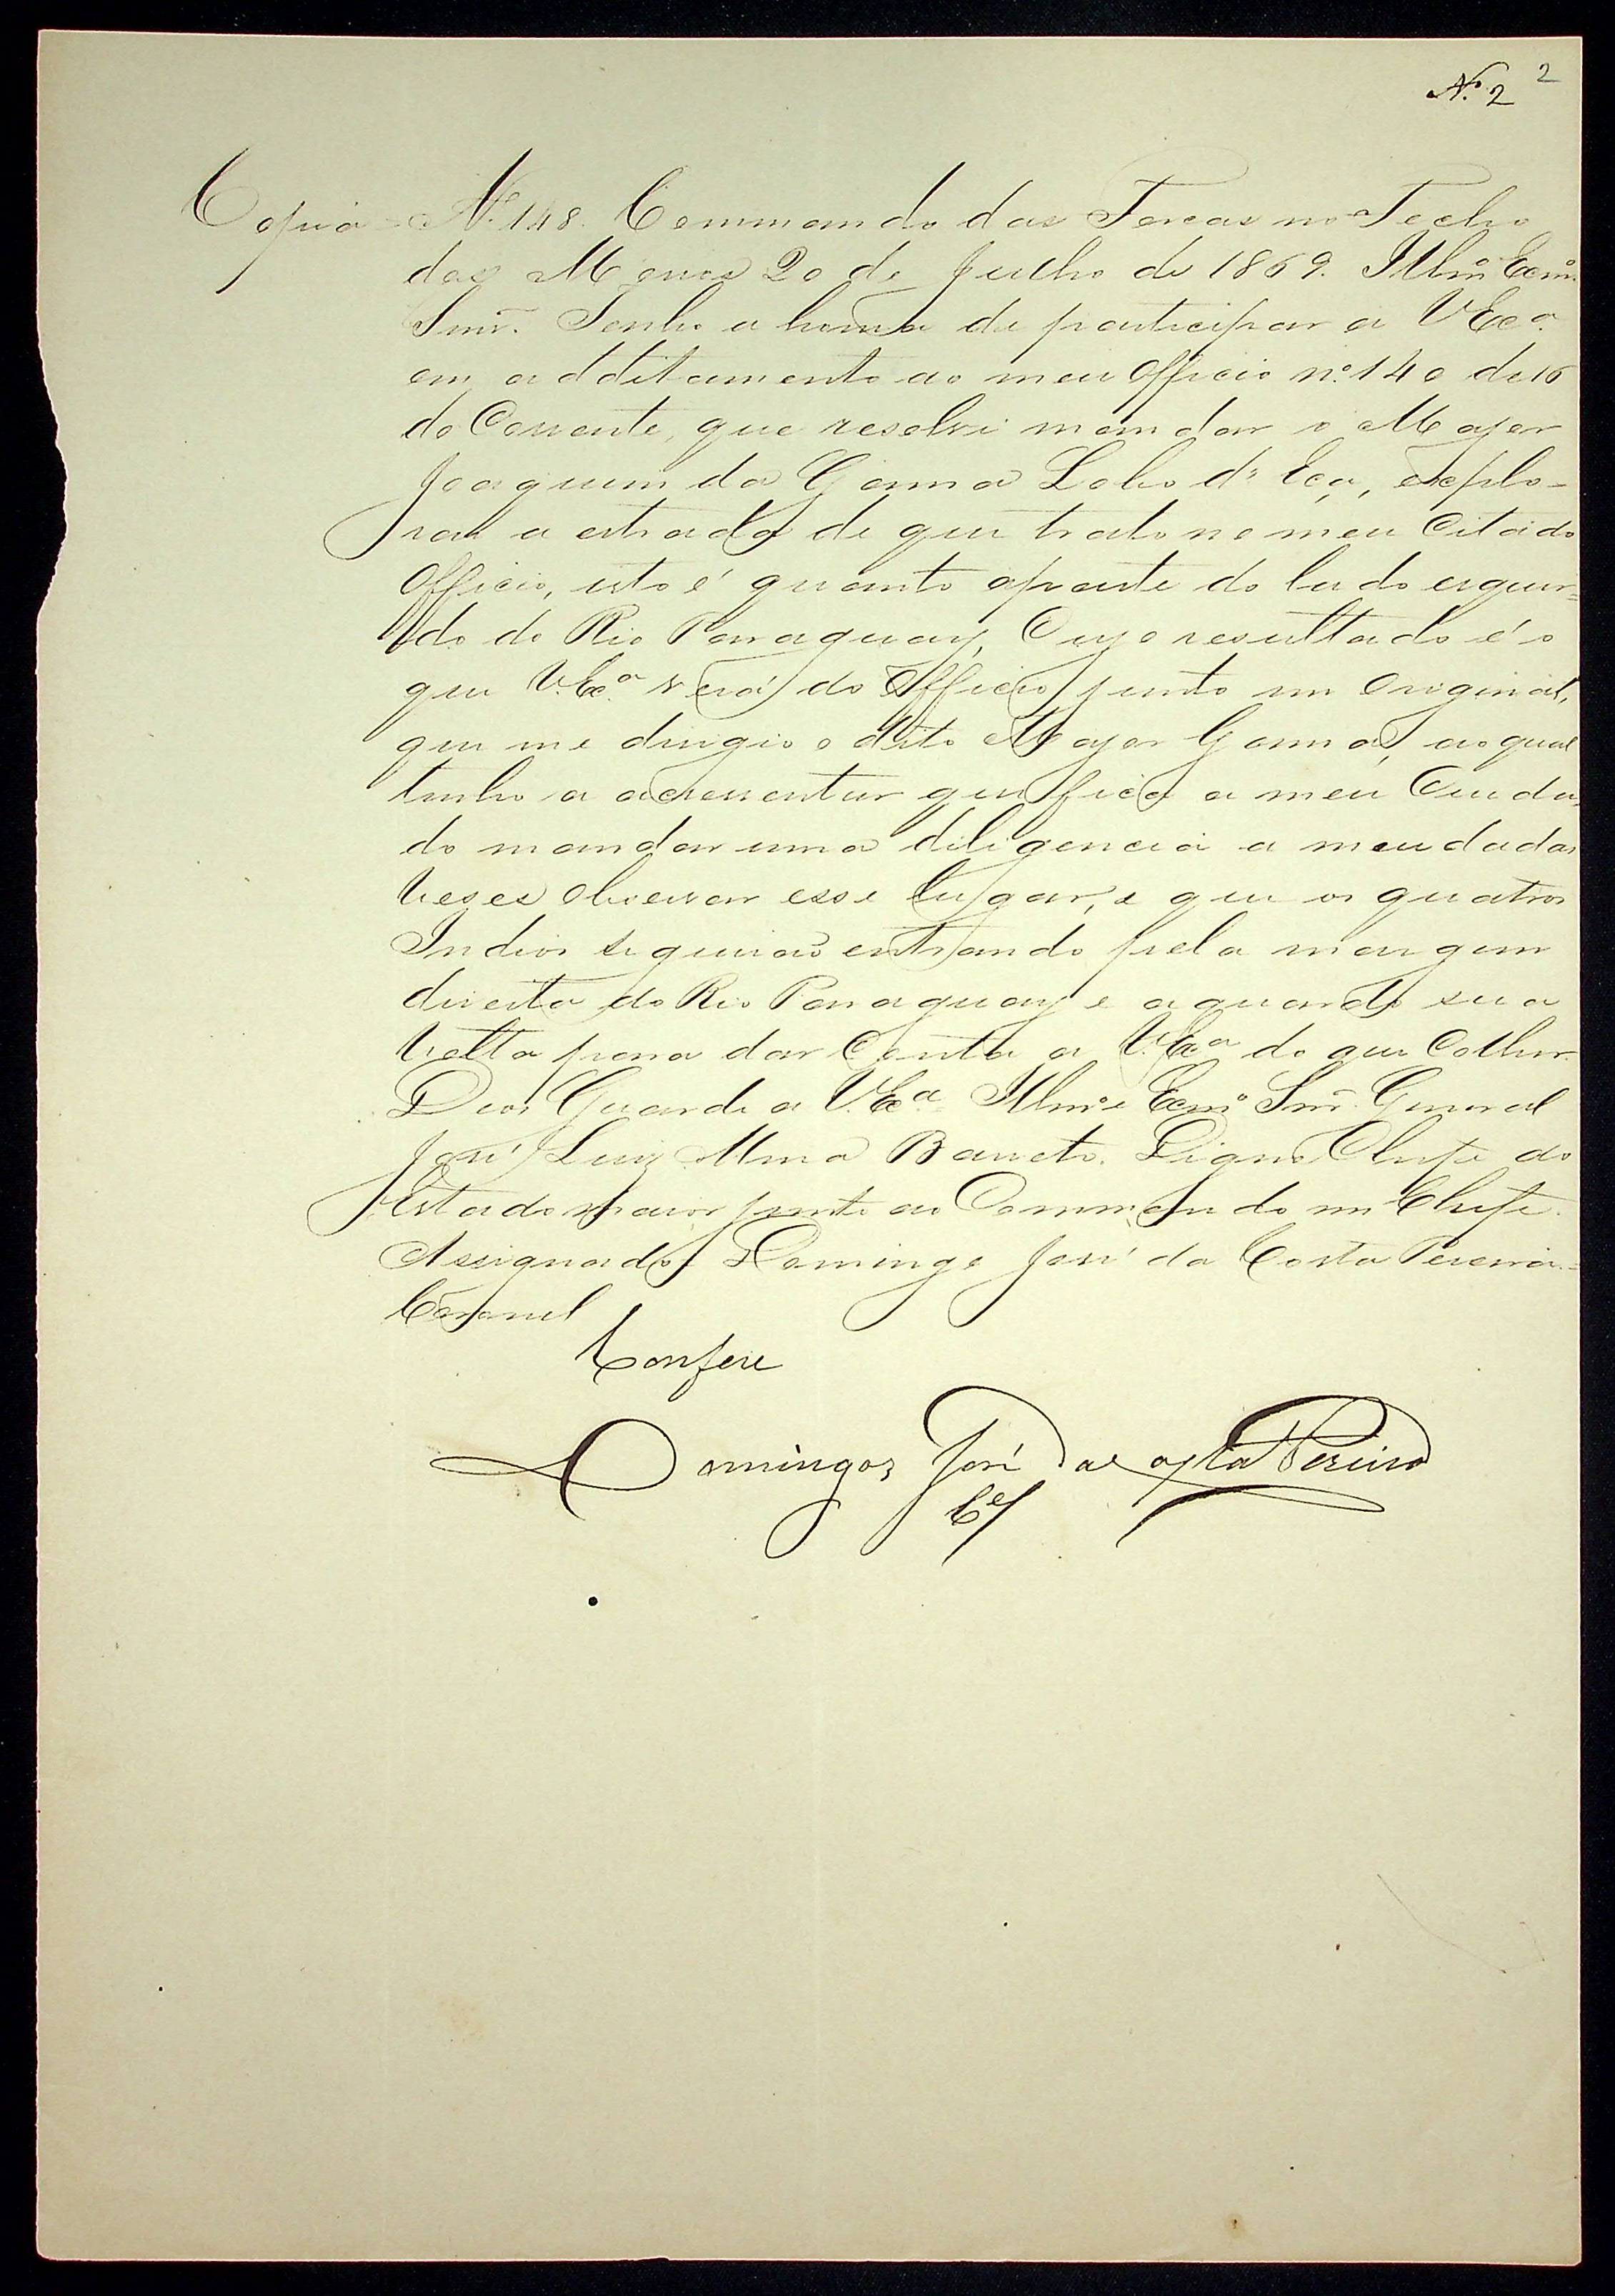 Nº 2 2
Copia = Nº 148. Commando das Forcas no Fecho
dos Morros 20 de Julho de 1869. Illmº Exmº
Snr. Tenho a honra de participar a VExª
em additamento ao meu Officio nº 140 de 16
do Corrente, que resolvi mandar o Major
Joaquim da Gama Lobo d' Eça, explo-
rar a estrada de que trato no meu Citado
Officio, isto é quanto aparte do lado esquer=
do do Rio Paraguay, Cujo resultado é o
que V.Exª verá do Officio junto em Original,
que me dirigio o dito Major Gama, ao qual
tenho a acressentar que fica a meu Cuida
do mandar uma diligencia a meudadas
Veses observar esse lugar, e que os quatro
Indios seguirão entrando pela margem
direita do Rio Paraguay e aguardo sua
Volta para dar Conta a V.Exª do que Colher.
Deos Guarde a V.Exª Illmº e Exmº Snr. General
José Luiz Mena Barreto. Digno Chefe do
Estado maior junto ao Commando em Chefe.
Assignado. Domingo José da Costa Pereira.=
Coronel
Confere
Domingos José da Costa Pereira
Cel